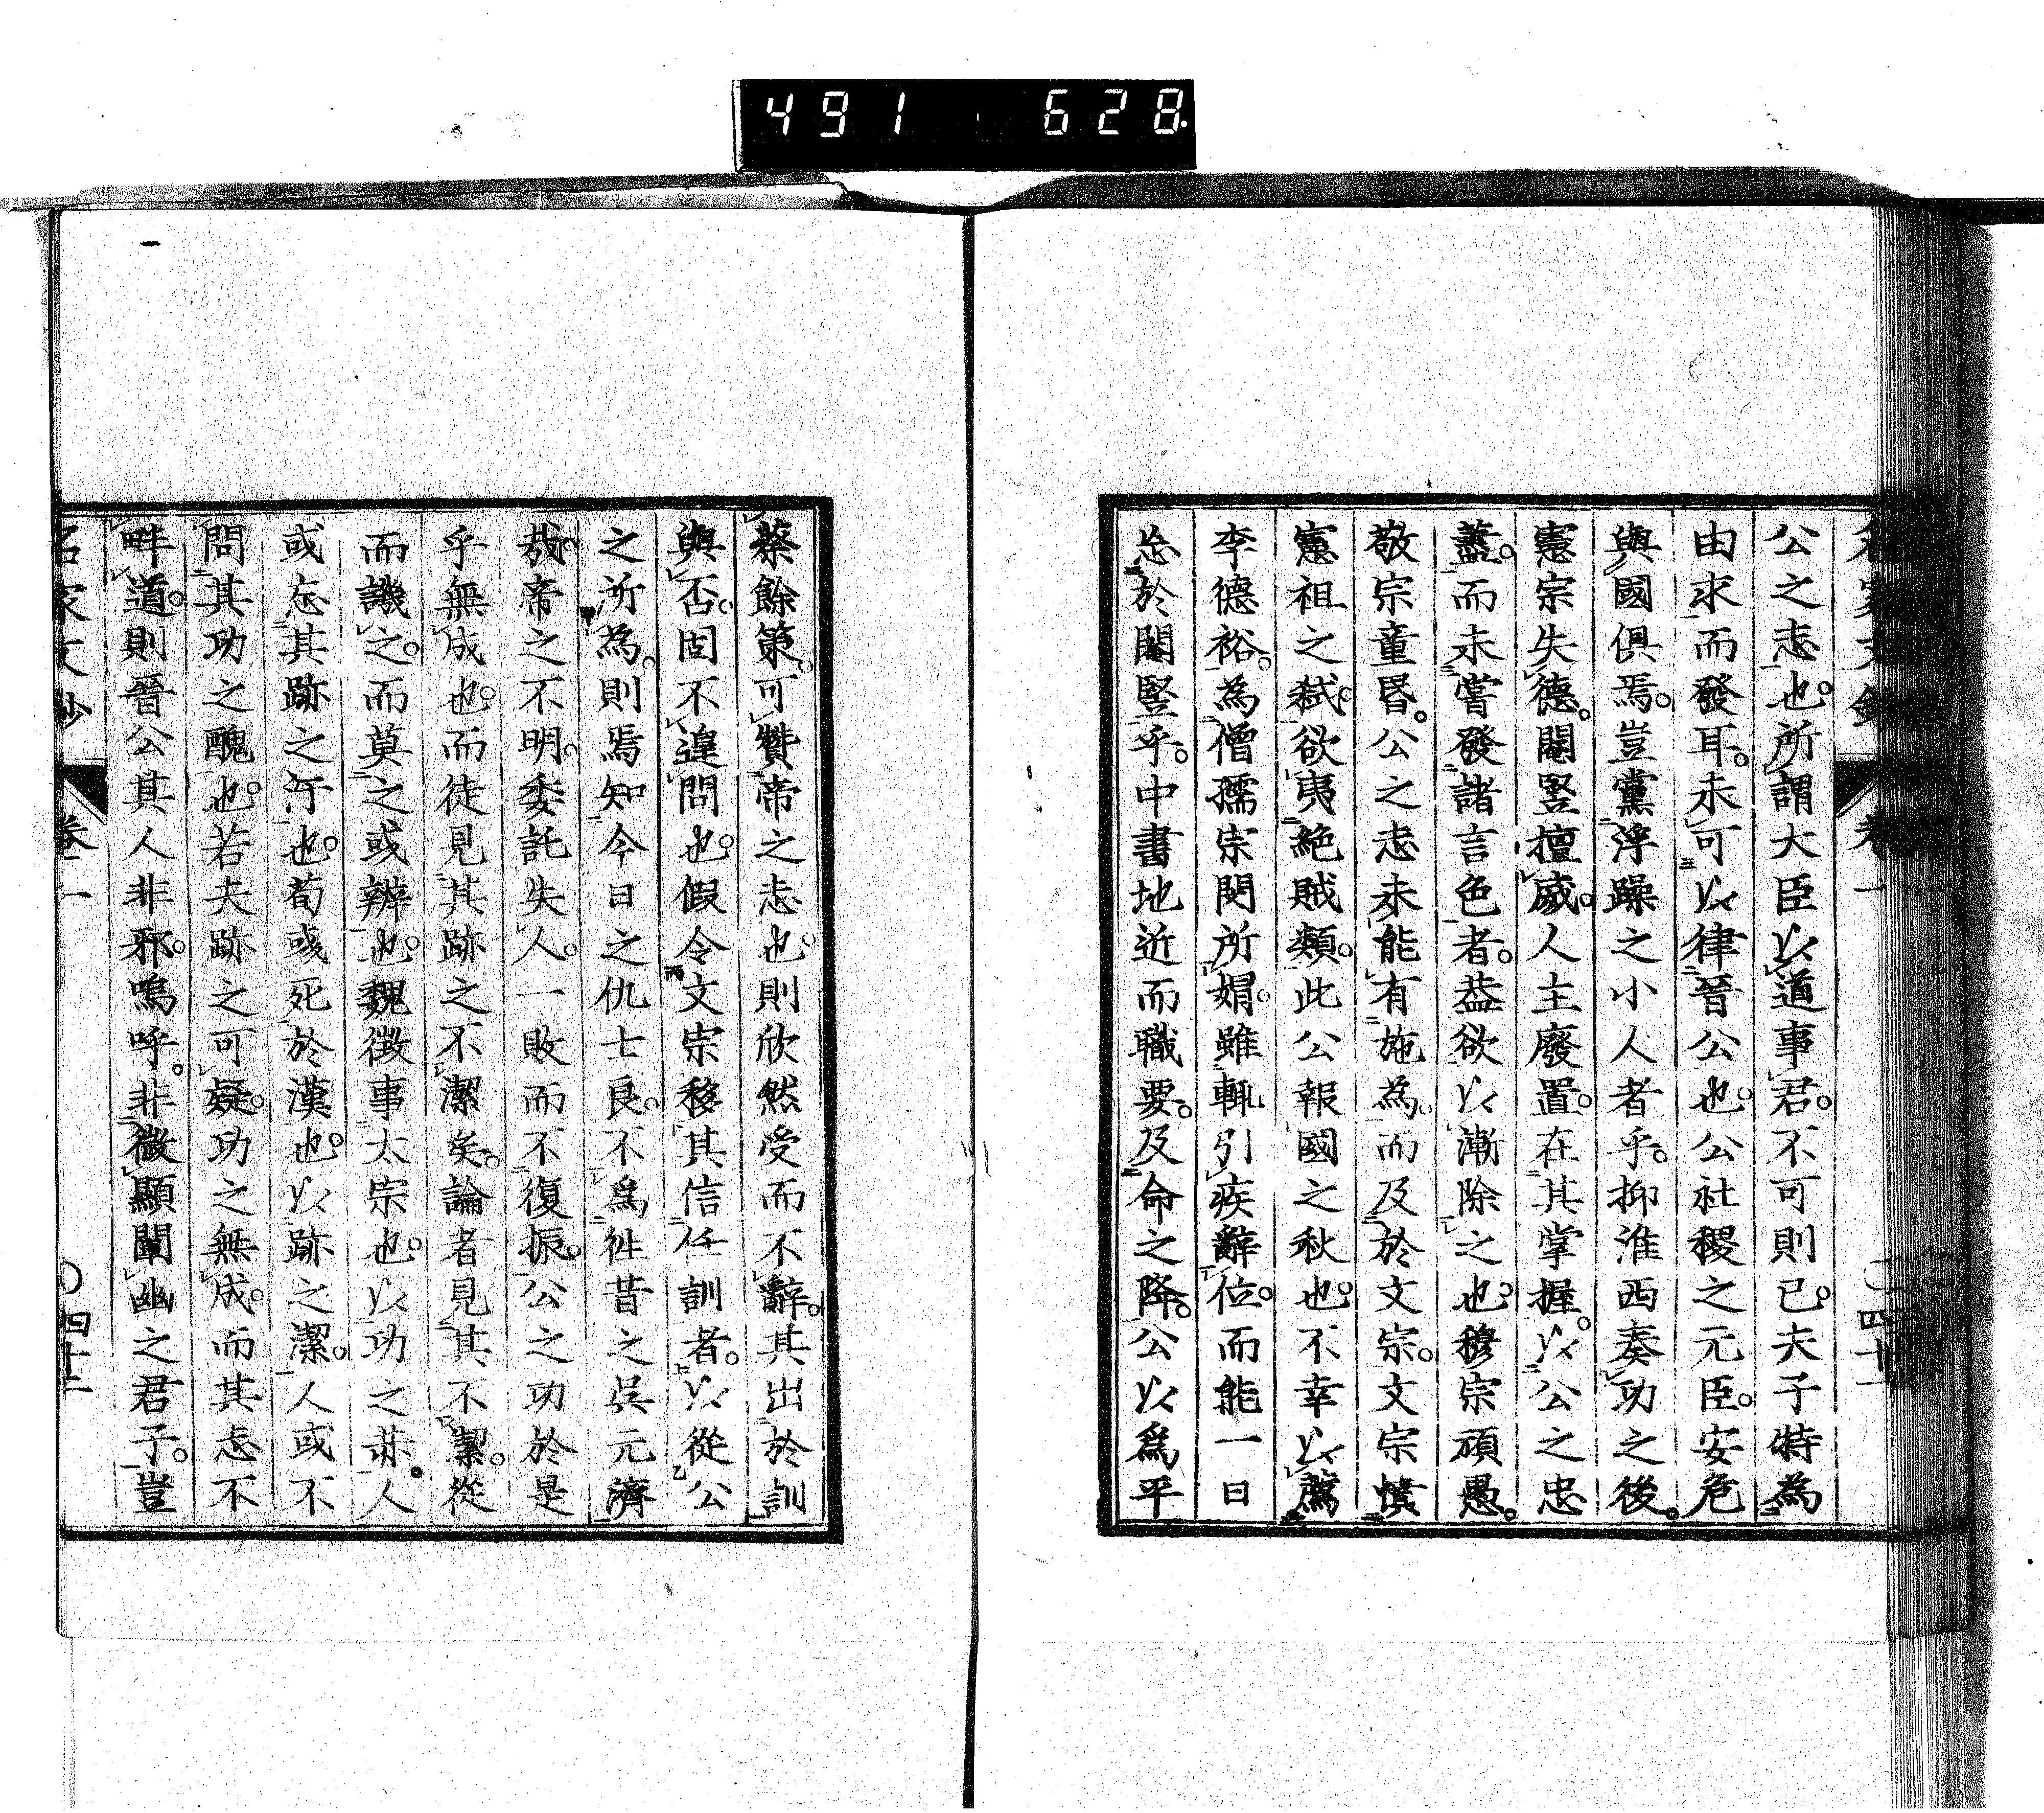 491 628
公之志也。所謂大臣以道事君。不可則已。夫子特為
由求而發耳。未可以律晉公也。公社稷之元臣。安危
與國俱焉。豈黨浮躁之小人者乎。抑淮西奏功之後。
憲宗失德。閹竪擅威。人主廢置。在其掌握。以公之忠
藎。而未嘗發諸言色者。蓋欲以漸除之也。穆宗頑愚。
敬宗童昏。公之志未能有施為。而及於文宗。文宗憤
憲祖之弒。欲夷絶賊類。此公報國之秋也。不幸以薦
李德裕。為僧孺宗閔所媢。雖輒引疾辭位。而能一日
忘於閹竪乎。中書地近而職要。及命之降。公以爲平
蔡餘策。可贊帝之志也。則欣然受而不辭。其出於訓
與否。固不遑問也。假令文宗移其信任訓者。以從公
之所為。則焉知今日之仇士良。不爲徃昔之吳元濟
哉。帝之不明。委託失人。一敗而不復振。公之功於是
乎無成也。而徒見其跡之不潔矣。論者見其不潔。從
而譏之。而莫之或辨也。魏徵事太宗也。以功之菾。人
或忘其跡之汚也。荀彧死於漢也。以跡之潔。人或不
問其功之醜也。若夫跡之可疑。功之無成。而其志不
畔道。則晉公其人非邪。嗚呼。非微顯闡幽之君子。豈
名家文鈔 卷一 〇四十二